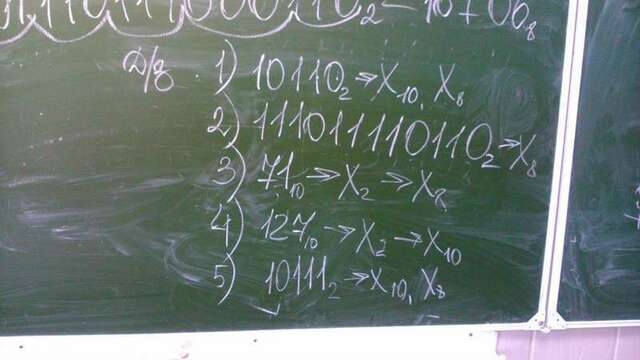 Д/з 1) 10110₂ → X₁₀, X₈
2) 1110111110110₂ → X₈
3) 71₁₀ → X₂ → X₈
4) 127₁₀ → X₂ → X₁₀
5) 10111₂ → X₁₀, X₈